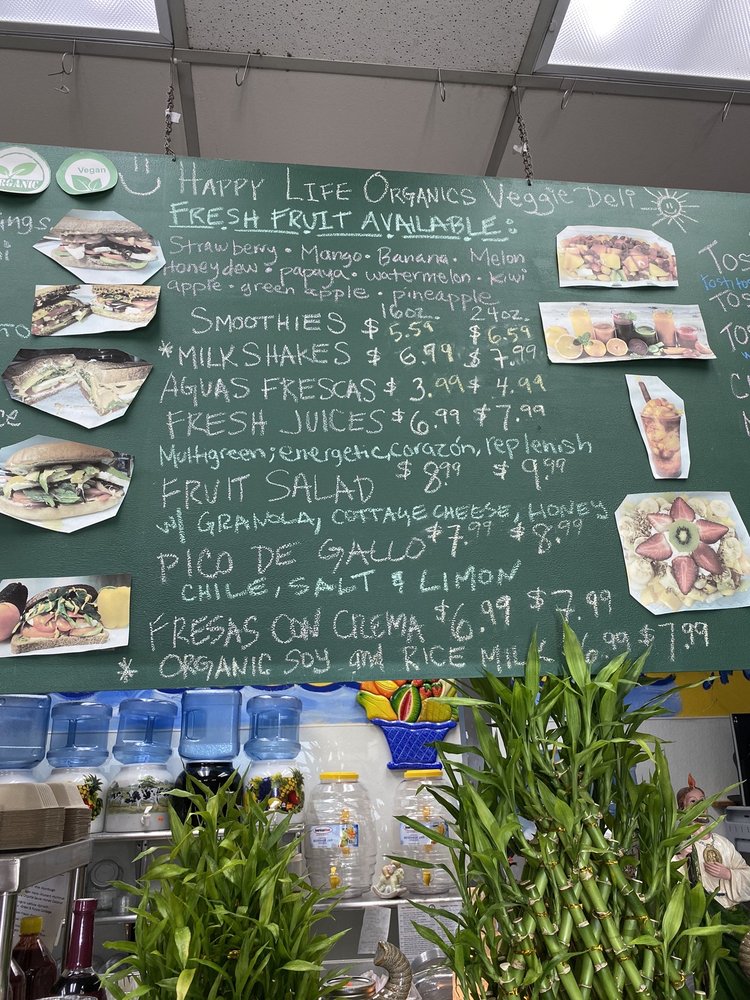 ORGANIC
Vegan
HAPPY LIFE ORGANICS Veggie Deli
FRESH FRUIT AVAILABLE:
Strawberry · Mango · Banana · Melon
Honeydew · papaya · watermelon · kiwi
apple · green apple · pineapple
16oz. 24oz.
SMOOTHIES $5.59 $6.59
*MILKSHAKES $6.99 $7.99
AGUAS FRESCAS $3.99 $4.99
FRESH JUICES $6.99 $7.99
Multigreen; energetic, corazón, replenish
FRUIT SALAD $8.99 $9.99
w/ GRANOLA, COTTAGE CHEESE, HONEY
PICO DE GALLO $7.99 $8.99
CHILE, SALT & LIMON
FRESAS CON CREMA $6.99 $7.99
* ORGANIC SOY and RICE MILK 6.99 $7.99